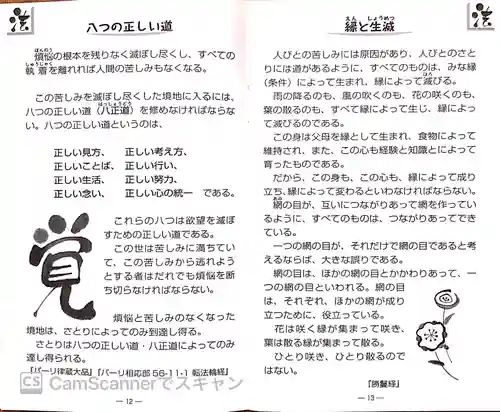 法
八つの正しい道
ぼんのう
煩悩の根本を残りなく滅ぼし尽くし、すべての
しゅうじゃく
執着を離れれば人間の苦しみもなくなる。
この苦しみを滅ぼし尽くした境地に入るには、
はっしょうどう
八つの正しい道（八正道）を修めなければならな
い。八つの正しい道というのは、
正しい見方、 正しい考え方、
正しいことば、 正しい行い、
正しい生活、 正しい努力、
正しい念い、 正しい心の統一 である。
これらの八つは欲望を滅ぼ
すための正しい道である。
この世は苦しみに満ちてい
て、この苦しみから逃れよう
とする者はだれでも煩悩を断
ち切らなければならない。
覚
煩悩と苦しみのなくなった
境地は、さとりによってのみ到達し得る。
さとりは八つの正しい道・八正道によってのみ
達し得られる。
『パーリ律蔵大品』『パーリ相応部 56-11-1 転法輪経』
CS CamScannerでスキャン
― 12 ―
法
えん しょうめつ
縁と生滅
人びとの苦しみには原因があり、人びとのさと
りには道があるように、すべてのものは、みな縁
（条件）によって生まれ、縁によって滅びる。
ほろ
雨の降るのも、風の吹くのも、花の咲くのも、
葉の散るのも、すべて縁によって生じ、縁によっ
て滅びるのである。
この身は父母を縁として生まれ、食物によって
維持され、また、この心も経験と知識とによって
育ったものである。
だから、この身も、この心も、縁によって成り
立ち、縁によって変わるといわなければならない。
あみ
網の目が、互いにつながりあって網を作ってい
るように、すべてのものは、つながりあってでき
ている。
一つの網の目が、それだけで網の目であると考
えるならば、大きな誤りである。
網の目は、ほかの網の目とかかわりあって、一
つの網の目といわれる。網の目
は、それぞれ、ほかの網が成り
立つために、役立っている。
花は咲く縁が集まって咲き、
葉は散る縁が集まって散る。
ひとり咲き、ひとり散るのでは
ない。
『勝鬘経』
― 13 ―